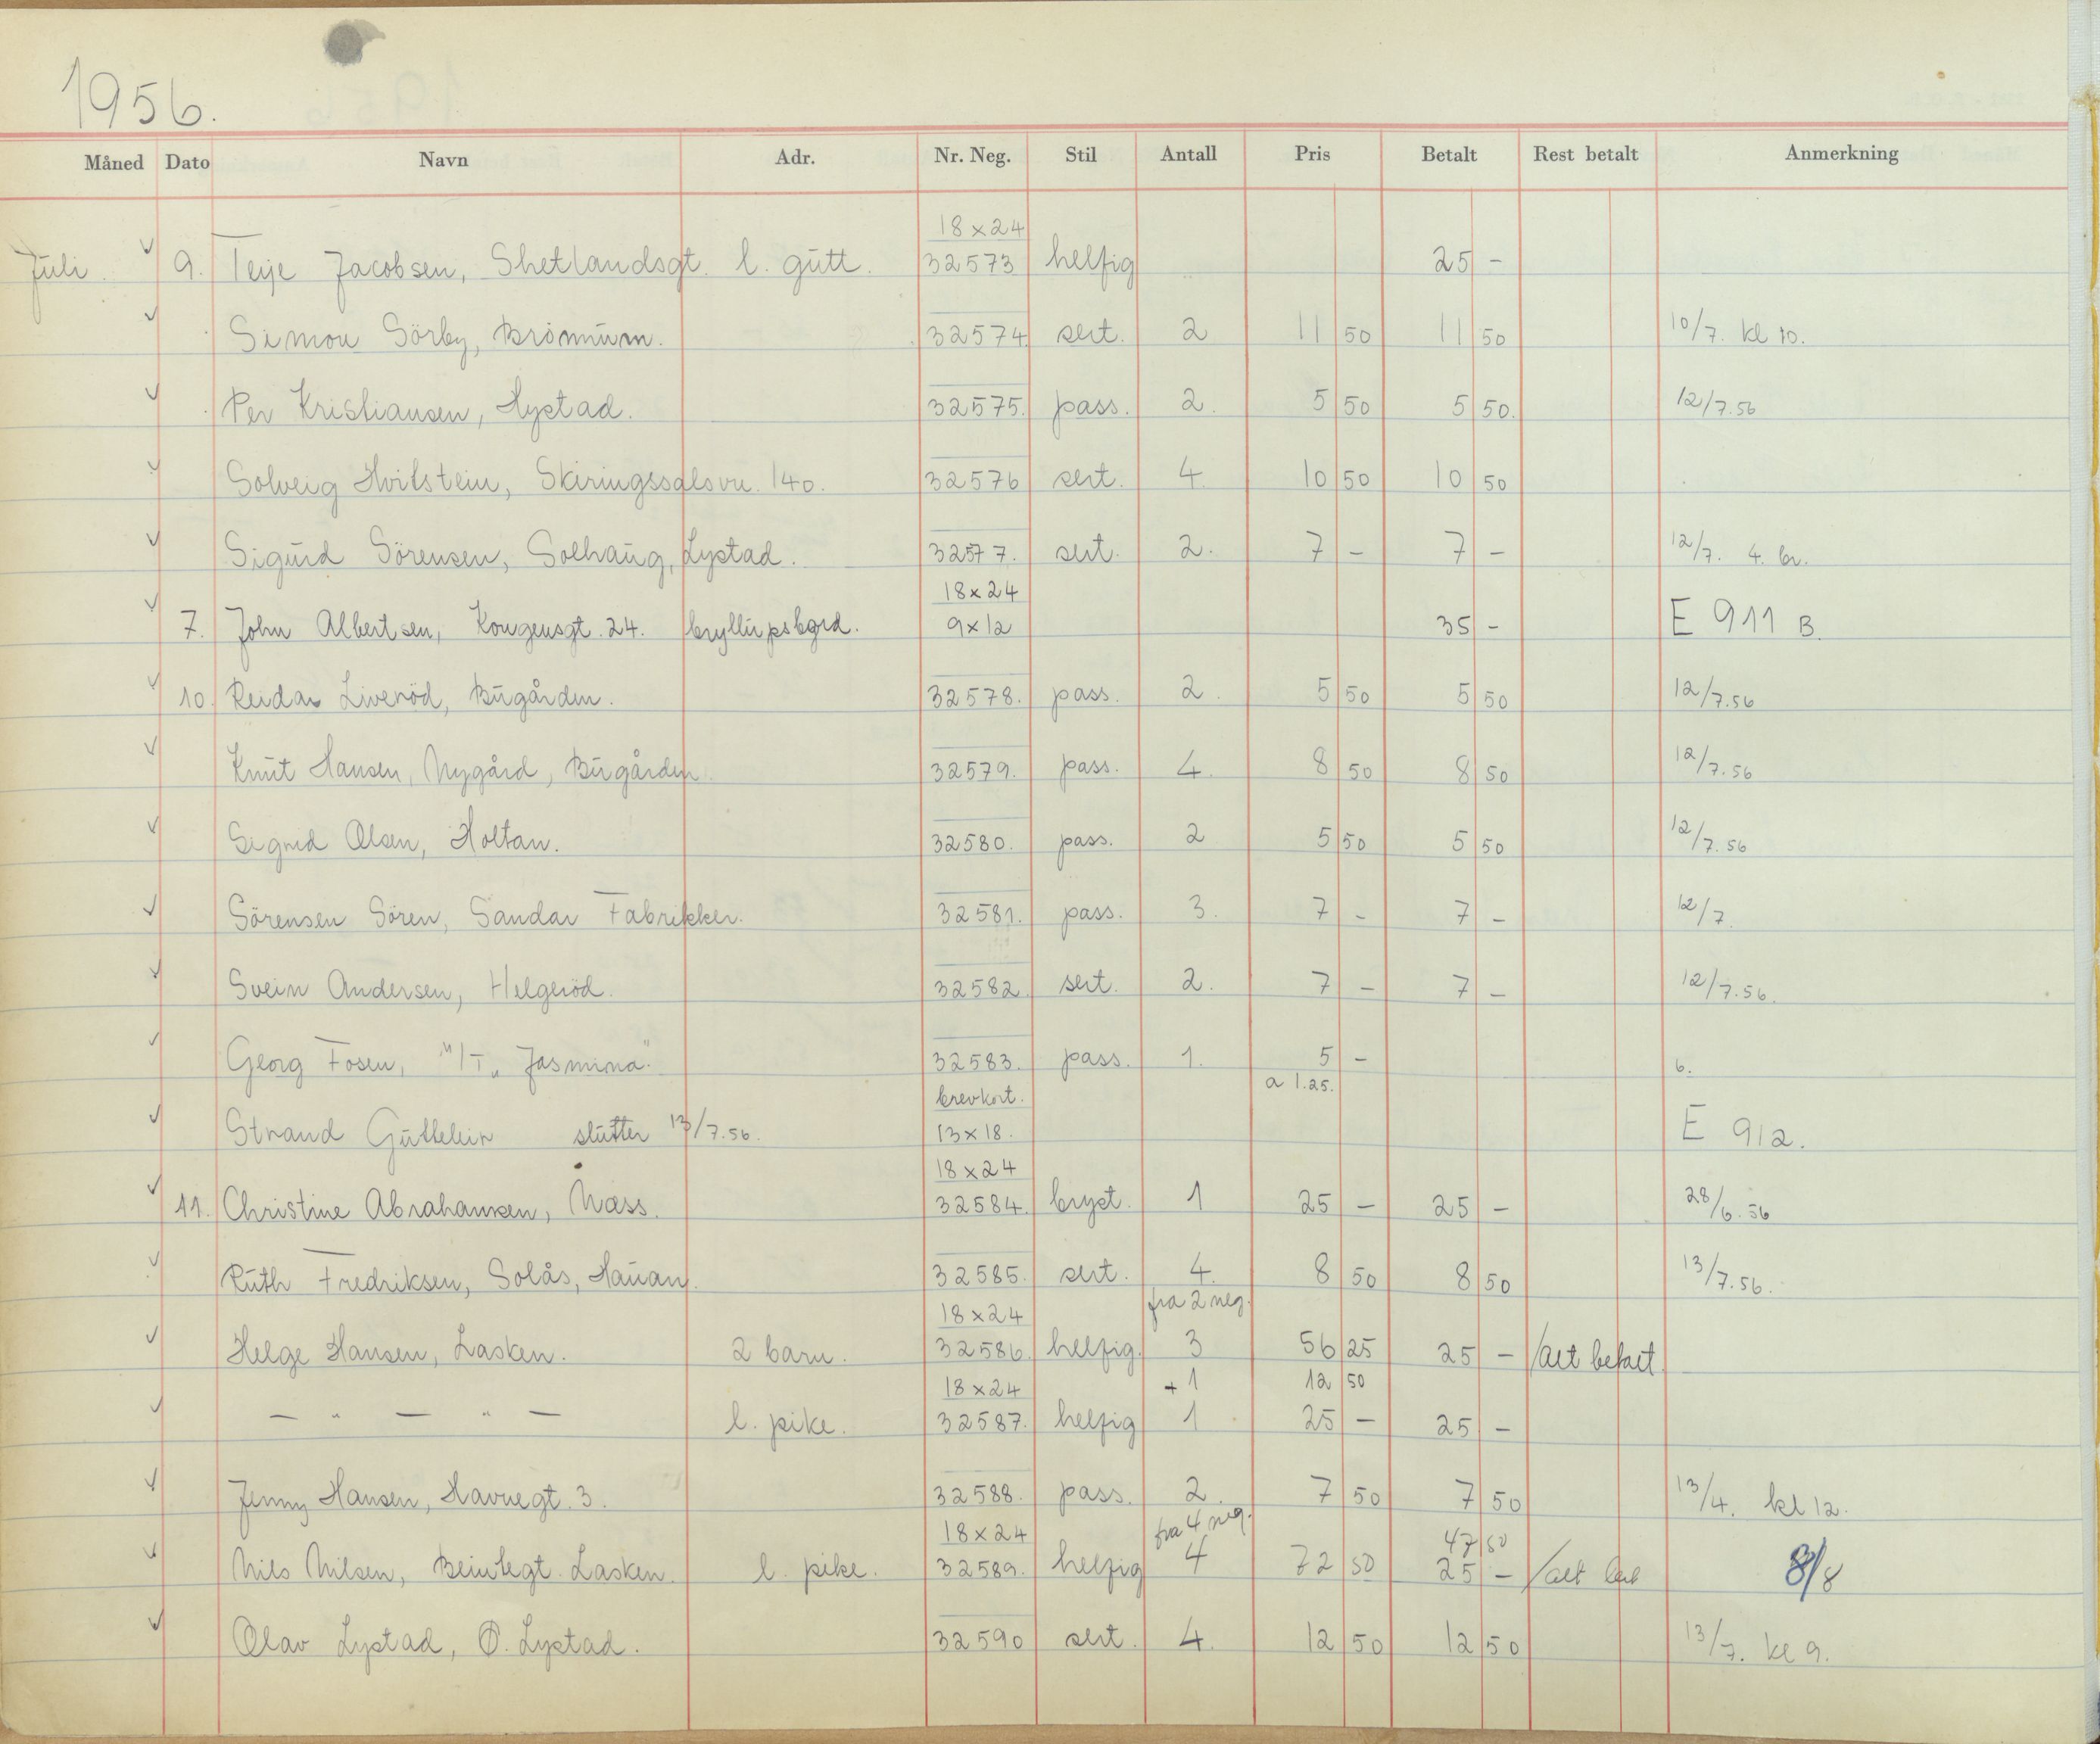 1956.
Måned Dato Navn Adr. Nr. Neg. Stil Antall Pris Betalt Rest betalt Anmerkning
18x24
Juli. ✓ 9. Terje Jacobsen, Shetlandsgt. l. gutt. 32573 helfig 25 -
✓ Simon Sörby, Brömnum. 32574. sert. 2 11 50 11 50 10/7. kl 10.
✓ Per Kristiansen, Lystad. 32575. pass. 2. 5 50 5 50. 12/7.56
✓ Solveig Hvitstein, Skiringssalsvn. 140. 32576 sert. 4 10 50 10 50
✓ Sigurd Sörensen, Solhaug, Lystad. 32577. sert. 2. 7 - 7 - 12/7. 4. br.
18x24
✓ 7. John Albertsen, Kongensgt. 24. bryllupsbord. 9x12 35 - E 911 B.
✓ 10. Reidar Liveröd, Bugården. 32578. pass. 2. 5 50 5 50 12/7.56
✓ Knut Hansen, Nygård, Bugården. 32579. pass. 4. 8 50 8 50 12/7.56
✓ Sigrid Olsen, Holtan. 32580. pass. 2 5 50 5 50 12/7.56
✓ Sörensen Sören, Sandar Fabrikker. 32581. pass. 3. 7 - 7 - 12/7.
✓ Svein Andersen, Helgeröd. 32582. sert. 2. 7 - 7 - 12/7.56.
✓ Georg Fosen, M/T „Jasmina". 32583. pass. 1. 5 - 6.
brevkort. a 1.25.
✓ Strand Gutteleir slutter 13/7.56. 13x18. E 912.
18x24
✓ 11. Christine Abrahamsen, Næss. 32584. bryst. 1 25 - 25 - 28/6.56
✓ Ruth Fredriksen, Solås, Hauan. 32585. sert. 4. 8 50 8 50 13/7.56.
18x24 fra 2 neg.
✓ Helge Hansen, Lasken. 2 barn. 32586. helfig. 3 56 25 25 - /alt betalt.
18x24 +1 12 50
✓ — " — " — l. pike. 32587. helfig 1 25 - 25 -
✓ Jenny Hansen, Havnegt. 3. 32588. pass. 2. 7 50 7 50 13/4. kl 12.
18x24 fra 4 neg. 47 50
✓ Nils Nilsen, Lasken. l. pike. 32589. helfig 4 72 50 25 - /alt bet 8/8
✓ Olav Lystad, Ö. Lystad. 32590 sert. 4. 12 50 12 50 13/7. kl 9.